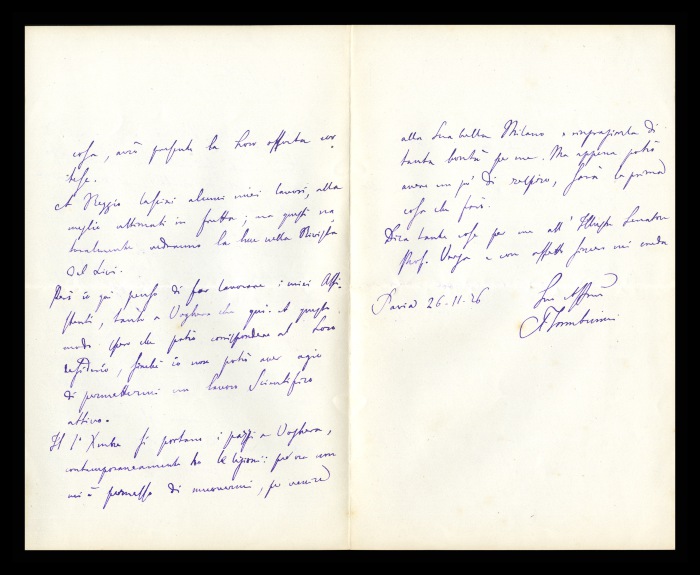 cosa, avrò presente la Loro offerta cor-
tese.
A Reggio lasciai alcuni miei lavori, alla
meglio ultimati in fretta; ma questi na-
turalmente vedranno la luce nella Rivista
del Livi.
Però io qui penso di far lavorare i miei Assi-
stenti, tanto a Voghera che qui. A questo
modo spero che potrò corrispondere al Loro
desiderio, sinchè io non potrò aver agio
di permettermi un lavoro scientifico
attivo.
Il 1° Xmbre si portano i pazzi a Voghera,
contemporaneamente ho le lezioni: per ora non
mi è permesso di muovermi, per venire
alla Sua bella Milano e ringraziarla di
tanta bontà per me. Ma appena potrò
avere un po' di respiro, sarà la prima
cosa che farò.
Dica tante cose per me all' Illustre Senatore
Prof. Verga e con affetto sincero mi creda
Suo Affmo
Pavia 26.11.76
A Tamburini